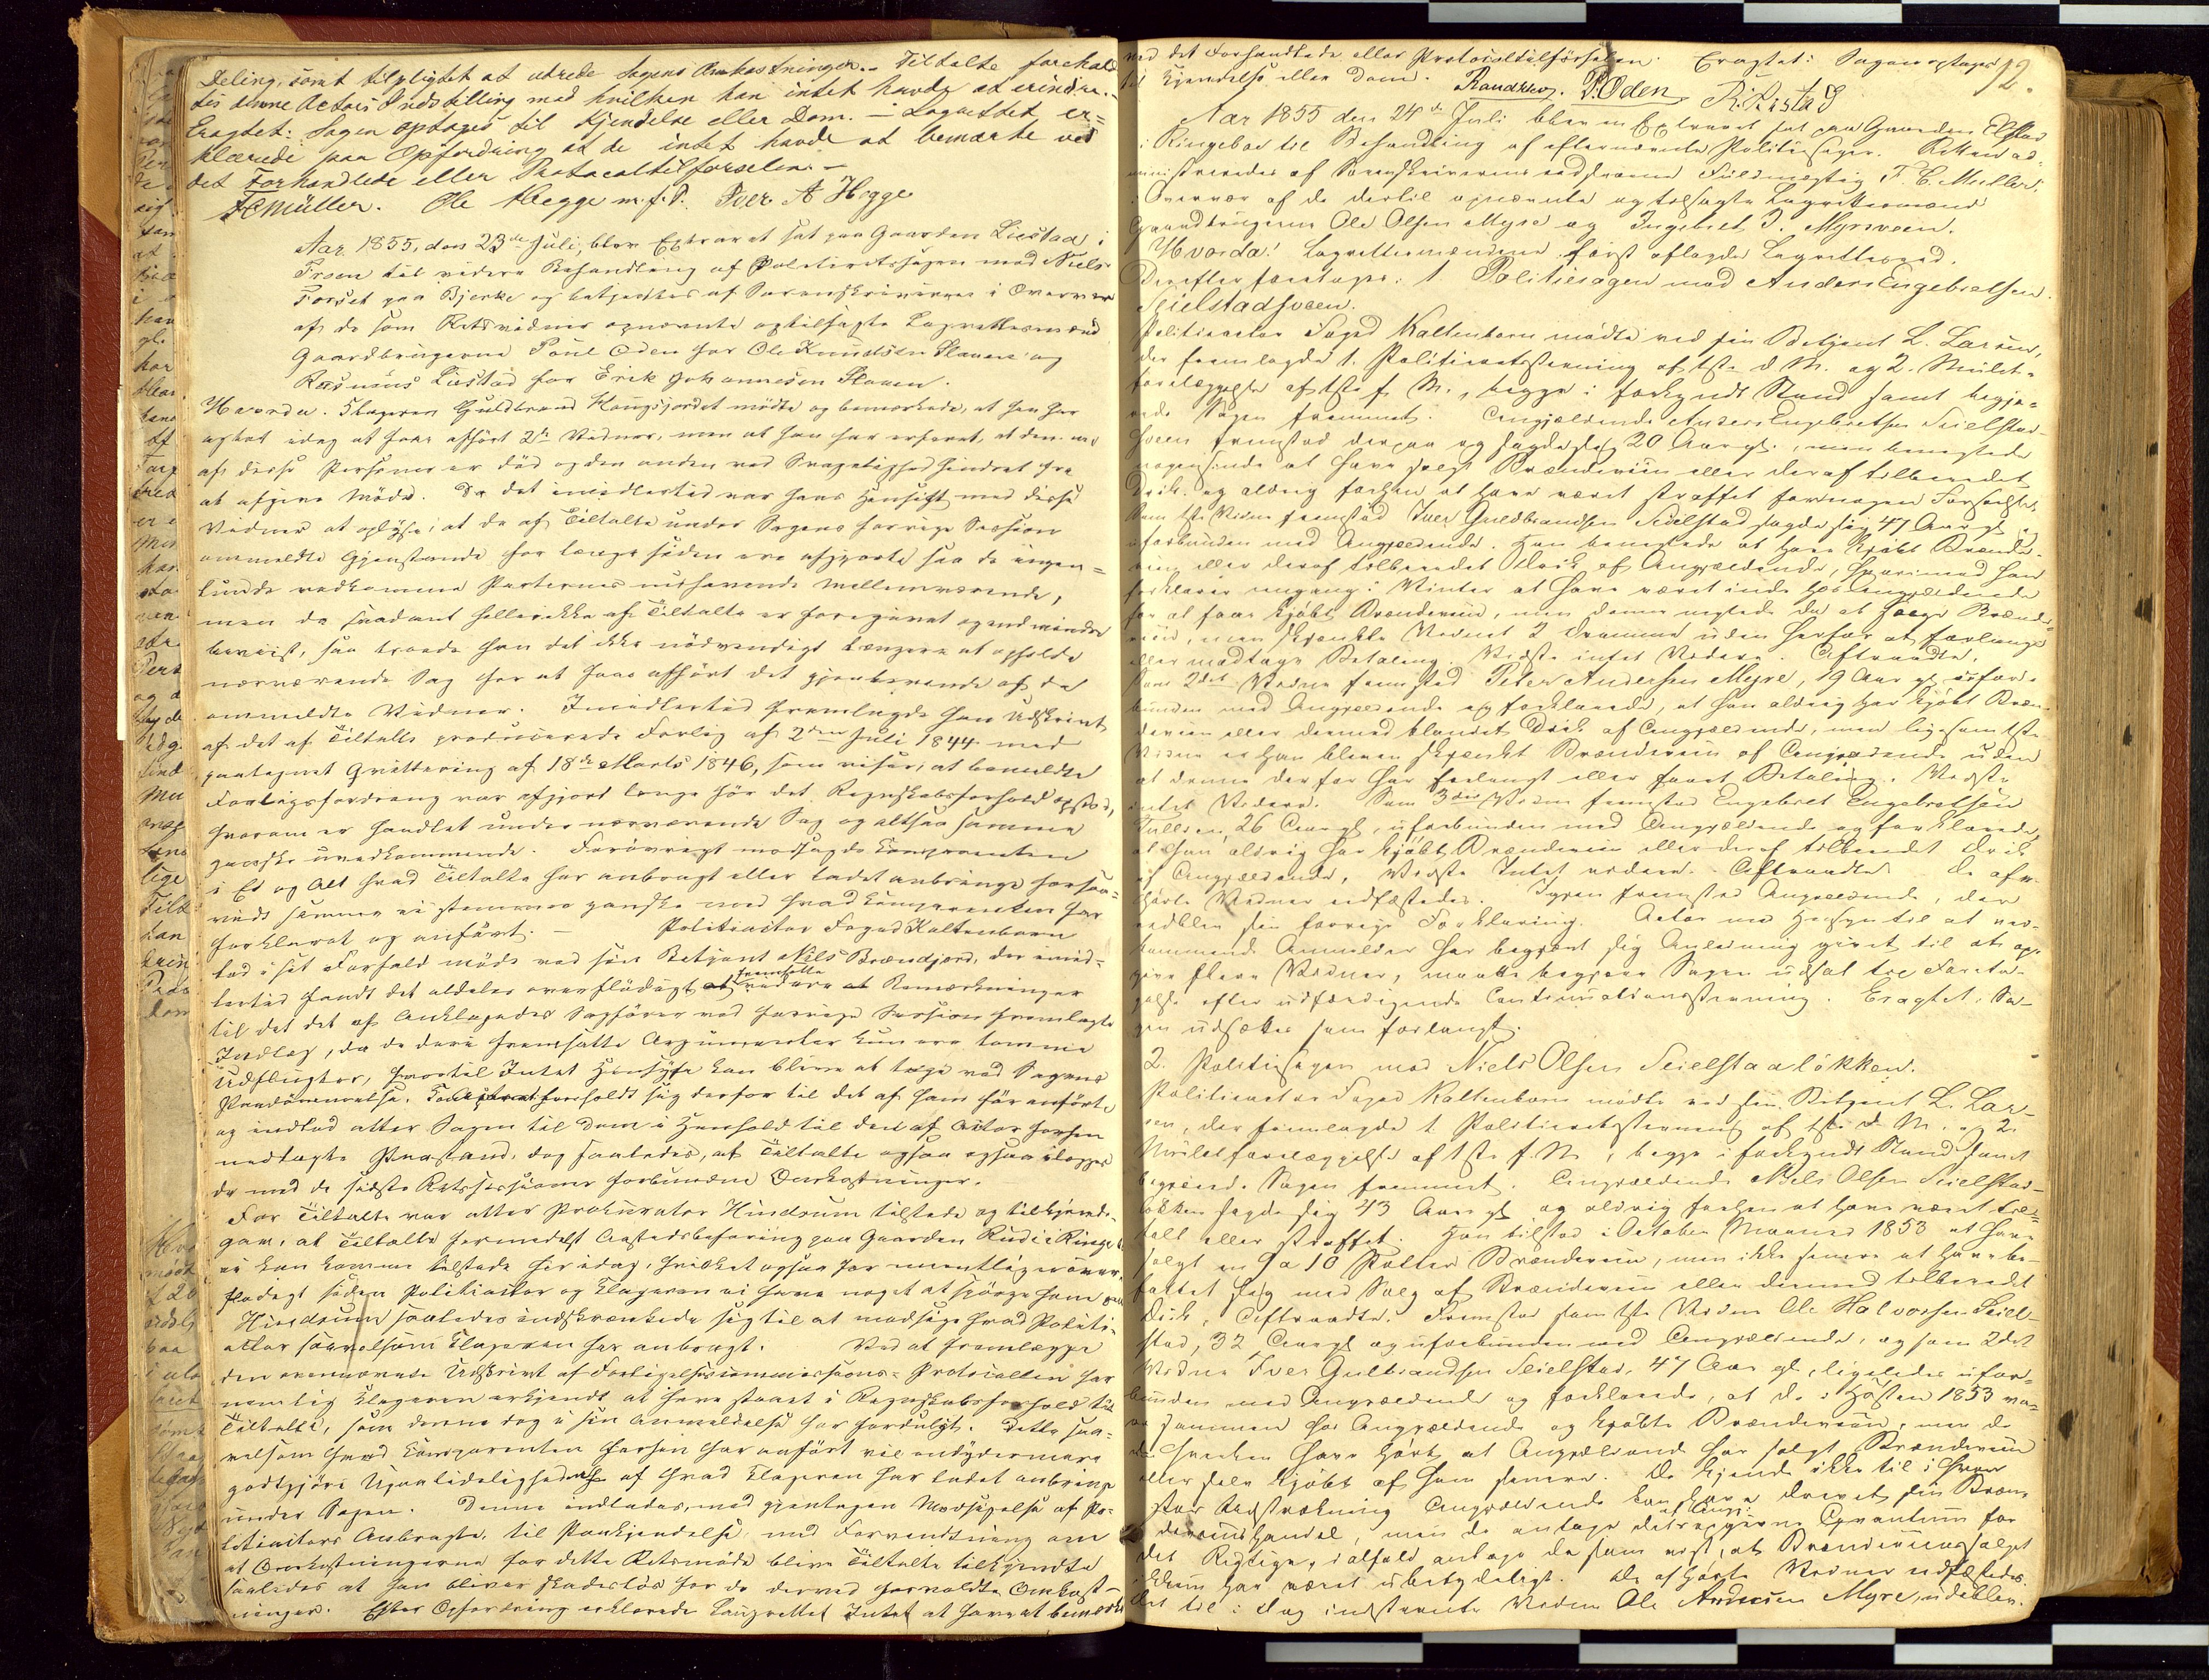 Deling, samt tilpligtet at udrede Sagens Omkostninger. – Tiltalte forehold
tes denne Actors Indstilling mod hvilken han intet havde at erindre. –
Eragtet: Sagen optages til Kjendelse eller Dom. – Lagrettet er=
klærede paa Opfordring at de intet havde at bemærke ved
det Forhandlede eller Protocoltilførselen. –
FCMüller. Ole Hegge m.f.P. Iver A Hogge
Aar 1855, den 23de Juli, blev Extraret sat paa Gaarden Liestad i
Froen til videre Behandling af Politiretssagen mod Niels
Forset paa Bjerke og betjentes af Sorenskriveren i Overvær
af de som Retsvidner opnævnte og tilsagte Lagrettesmænd
Gaardbrugerne Poul Oden for Ole Knudsen Slaaen og
Rasmus Liestad for Erik Johannesen Slaaen.
Hvorda. Klageren Guldbrand Kongsjordet mødte og bemærkede, at han har
agtet idag at faae afhørt 2de Vidner, men at han har erfaret, at den ene
af disse Personer er død og den anden ved Svagelighed hindret fra
at afgive Møde. Da det imidlertid var hans Hensigt med disse
Vidner at oplyse, at de af Tiltalte under Sagens forrige Session
ommeldte Gjenstande for længe siden ere afgjorte saa de ingen=
lunde vedkomme Parternes nuhavende Mellemværende,
men da saadant hellerikke af Tiltalte er foregivet og end mindre
beviist, saa troede han det ikke nødvendigt længere at opholde
nærværende Sag for at faae afhørt det gjenlevende af de
ommeldte Vidner. Imidlertid fremlagde han Udskrivt
af det af Tiltalte producerede Forlig af 2den Juli 1844 med
paategnet Qvittering af 18de Marts 1846, som viser, at bemeldte
Forligsfordring var afgjort længe før det Regnskabsforhold opstod,
hvorom er handlet under nærværende Sag og altsaa samme
ganske uvedkommende. Forøvrigt modsagde Comparenten
i Et og Alt hvad Tiltalte har anbragt eller ladet anbringe forsaa=
vidt samme ei stemmer ganske med hvad Comparenten har
forklaret og anført. – Politiactor Foged Kaltenborn
lod i sit Forfald møde ved sin Betjent Niels Brændjord, der imid=
lertid fandt det aldeles overflødigt at fremsætte videre Bemærkninger
til det det af Anklagedes Sagfører ved forrige Session fremlagte
Indlæg, da de deri fremsatte Argumenter kun ere tomme
Udflugter, hvortil Intet Hensyn kan blive at tage ved Sagens
Paadømmelse. forholdt sig derfor til det af ham før anførte
og indlod atter Sagen til Dom i Henhold til den af Actor forhen
nedlagte Paastand, dog saaledes, at Tiltalte ogsaa ogsaa ilægges
de med de sidste Retssessioner forbundne Omkostninger.
For Tiltalte var atter Prokurator Hindrum tilstede og tilkjende=
gav, at Tiltalte formedelst Aastedsbefaring paa Gaarden Rud i Ringebo
ei kan komme tilstede her idag, hvilket ogsaa har været over=
flødigt siden Politiactor og Klageren ei have noget at spørge ham om
Hindrum saaledes indskrænkede sig til at modsige hvad Politi=
actor saavelsom Klageren har anbragt. Ved at fremlægge
den ovennævnte Udskrivt af Forligelsescommissions-Protocollen har
nemlig Klageren erkjendt at have staaet i Regnskabsforhold til
Tiltalte, som denne dog i sin Anmeldelse har fordulgt. Dette saa=
velsom hvad Comparenten forhen har anført vil endydermere
godtgjøre Upaalideligheden af hvad Klageren har ladet anbringe
under Sagen. Denne indlodes, med gjentagen Modsigelse af Po=
litiactors Anbragte, til Paakjendelse, med Formening om
at Omkostningerne for dette Retsmøde blive Tiltalte tilkjendte
saaledes at han bliver skadesløs for de derved forvoldte Omkost=
ninger. Efter Opfordring erklærede Laugrettet Intet at have at bemærke
ved det Forhandlede eller Protocoltilførselen. Eragtet: Sagen optages 12.
til Kjendelse eller Dom. Randklev. P. Oden R. Ristad
Aar 1855 den 24de Juli blev en Extraret sat paa Gaarden Elstad
i Ringeboe til Behandling af efternævnte Politiesager. Retten ad=
ministreredes af Sorenskriverens edsvorne Fuldmægtig F. C. Müller,
i Overvær af de dertil opnævnte og tilsagte Lagrettesmænd
Gaardbrugerne Ole Olsen Myre og Ingebret J. Myrveen.
Hvorda! Lagrettesmændene først aflagde Lagretteseed.
Derefter foretoges: 1 Politiesagen mod Anders Engebretsen
Seielstadsveen.
Politieactor Foged Kaltenborn mødte ved sin Betjent L. Larsen,
der fremlagde 1. Politieretsstevning af 1ste d. M. og 2. Mulct-
forelæggelse af 1ste f. M., begge i forkyndt Stand samt begjæ=
rede Sagen fremmet. Angjældende Anders Engebretsen Seielstad-
sveen fremstod derpaa og sagde sig 20 Aar gl., men benegtede
nogensinde at have solgt Brændeviin eller deraf tilberedet
Drik og aldrig forhen at have været straffet for nogen Forseelse.
Som 1ste Vidne fremstod Iver Guldbrandsen Seielstad sagde sig 47 Aar gl
uforbunden med Angjældende. Han benegtede at have kjøbt Brænde-
viin eller deraf tilberedet Drik af Angjældende, hvorimod han
forklarer engang i Vinter at have været inde hos Angjældende
for at faae kjøbt Brændeviin, men denne negtede da at sælge Brænde-
viin, men skjænkte Vidnet 2 Dramme uden herfor at forlange
eller modtage Betaling. Vidste intet Videre. Aftraadte.
Som 2det Vidne fremstod Peder Andersen Myre, 19 Aar gl, ufor=
bunden med Angjældende og forklarede, at han aldrig har kjøbt Bræn-
deviin eller dermed blandet Drik af Angjældende, men ligesom 1ste
Vidne er han bleven skjænkt Brændeviin af Angjældende uden
at denne derfor har forlangt eller faaet Betaling. Vidste
intet Videre. Som 3die Vidne fremstod Engebret Engebretsen
Tullien, 26 Aar gl., uforbunden med Angjældende og forklarede,
at han aldrig har kjøbt Brændeviin eller deraf tilberedet Drik
af Angjældende, Vidste Intet videre. Aftraadte. De af-
hørte Vidner eedfæstedes. Igjen fremstod Angjældende, der
vedblev sin forrige Forklaring. Actor med Hensyn til at ved-
kommende Anmelder har begjært sig Anledning givet til at op-
give flere Vidner, maatte begjære Sagen udsat til Foreta-
gelse efter udfærdigende Continuationsstevning. Eragtet: Sa-
gen udsættes som forlangt.
2. Politiesagen mod Niels Olsen Seielstadløkken.
Politieactor Foged Kaltenborn mødte ved sin Betjent L. Lar-
sen, der fremlagde 1 Politieretsstevning af 1ste d. M. og 2.
Mulctforelæggelse af 1ste f. M., begge i forkyndt Stand samt
begjærede Sagen fremmet. Angjældende Niels Olsen Seielstad-
løkken sagde sig 43 Aar gl og aldrig forhen at have været til=
talt eller straffet. Han tilstod i October Maaned 1853 at have
solgt en 9 a 10 Potter Brændeviin, men ikke senere at have be-
fattet sig med Salg af Brændeviin eller dermed tilberedt
Drik. Aftraadte. Fremstod som 1ste Vidne Ole Halvorsen Seiel-
stad, 32 Aar gl og uforbunden med Angjældende, og som 2det
Vidne Iver Gulbrandsen Seielstad, 47 Aar gl, ligeledes ufor=
bunden med Angjældende og forklarede, at de i Høsten 1853 va-
re sammen hos Angjældende og kjøbte Brændeviin, men de
de hverken have hørt at Angjældende har solgt Brændeviin
eller selv kjøbt af ham senere. De kjende ikke til i hvor
stor Udstrækning Angjældende kan have drevet sin Bræn-
deviinshandel, men de antage det af Angj: opgivne Qvantum for
det Rigtige, ialfald antage de som vist, at Brændeviinssalget
har været ubetydeligt. De afhørte Vidner eedfæstedes.
Det til i Dag indstevnte Vidne Ole Andersen Myre, udeblev.